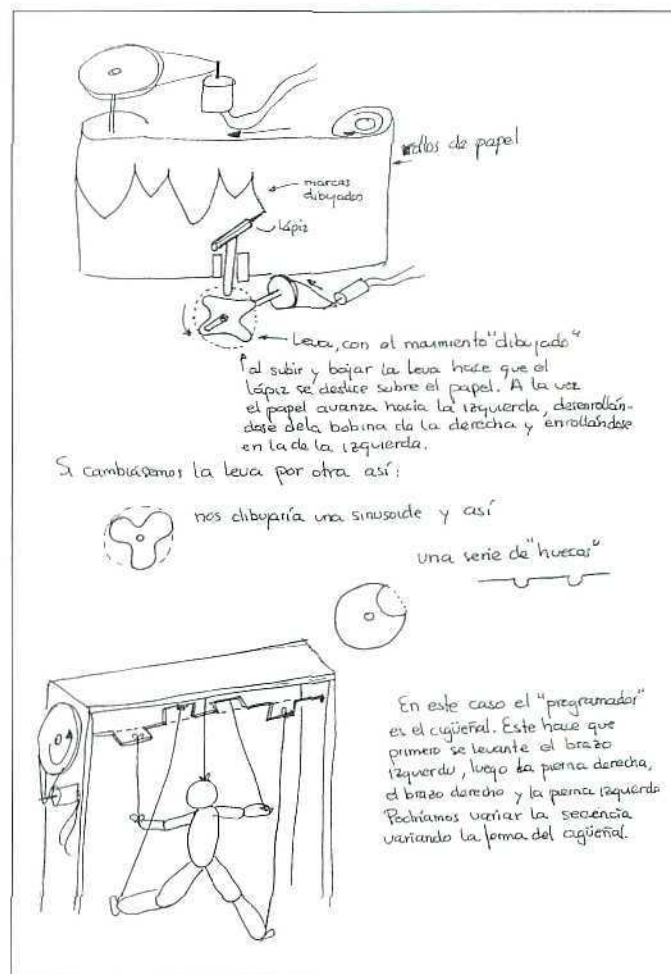 rollos de papel
marcas
dibujadas
lápiz
Leva, con el movimiento "dibujado"
al subir y bajar la leva hace que el
lápiz se deslice sobre el papel. A la vez
el papel avanza hacia la izquierda, desenrollán-
dose dela bobina de la derecha y enrollándose
en la de la izquierda.
Si cambiásemos la leva por otra así:
nos dibujaría una sinusoide y así
una serie de "huecos"
En este caso el "programador"
es el cigüeñal. Este hace que
primero se levante el brazo
izquierdo, luego la pierna derecha,
el brazo derecho y la pierna izquierda
Podríamos variar la secencia
variando la forma del cigüeñal.